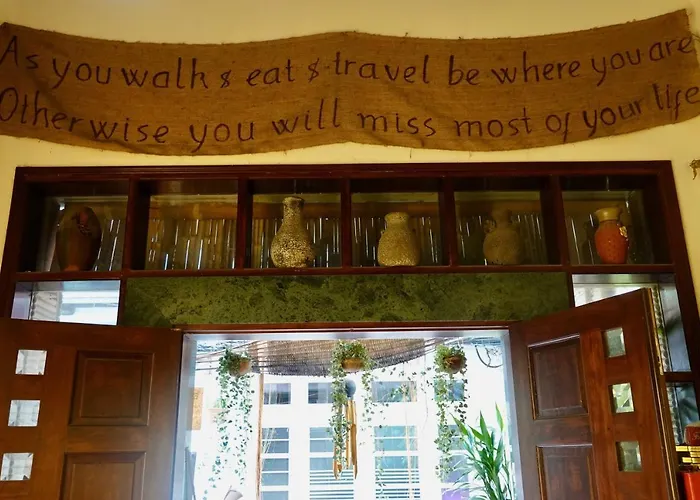 As you walk & eat & travel be where you are
Otherwise you will miss most of your life